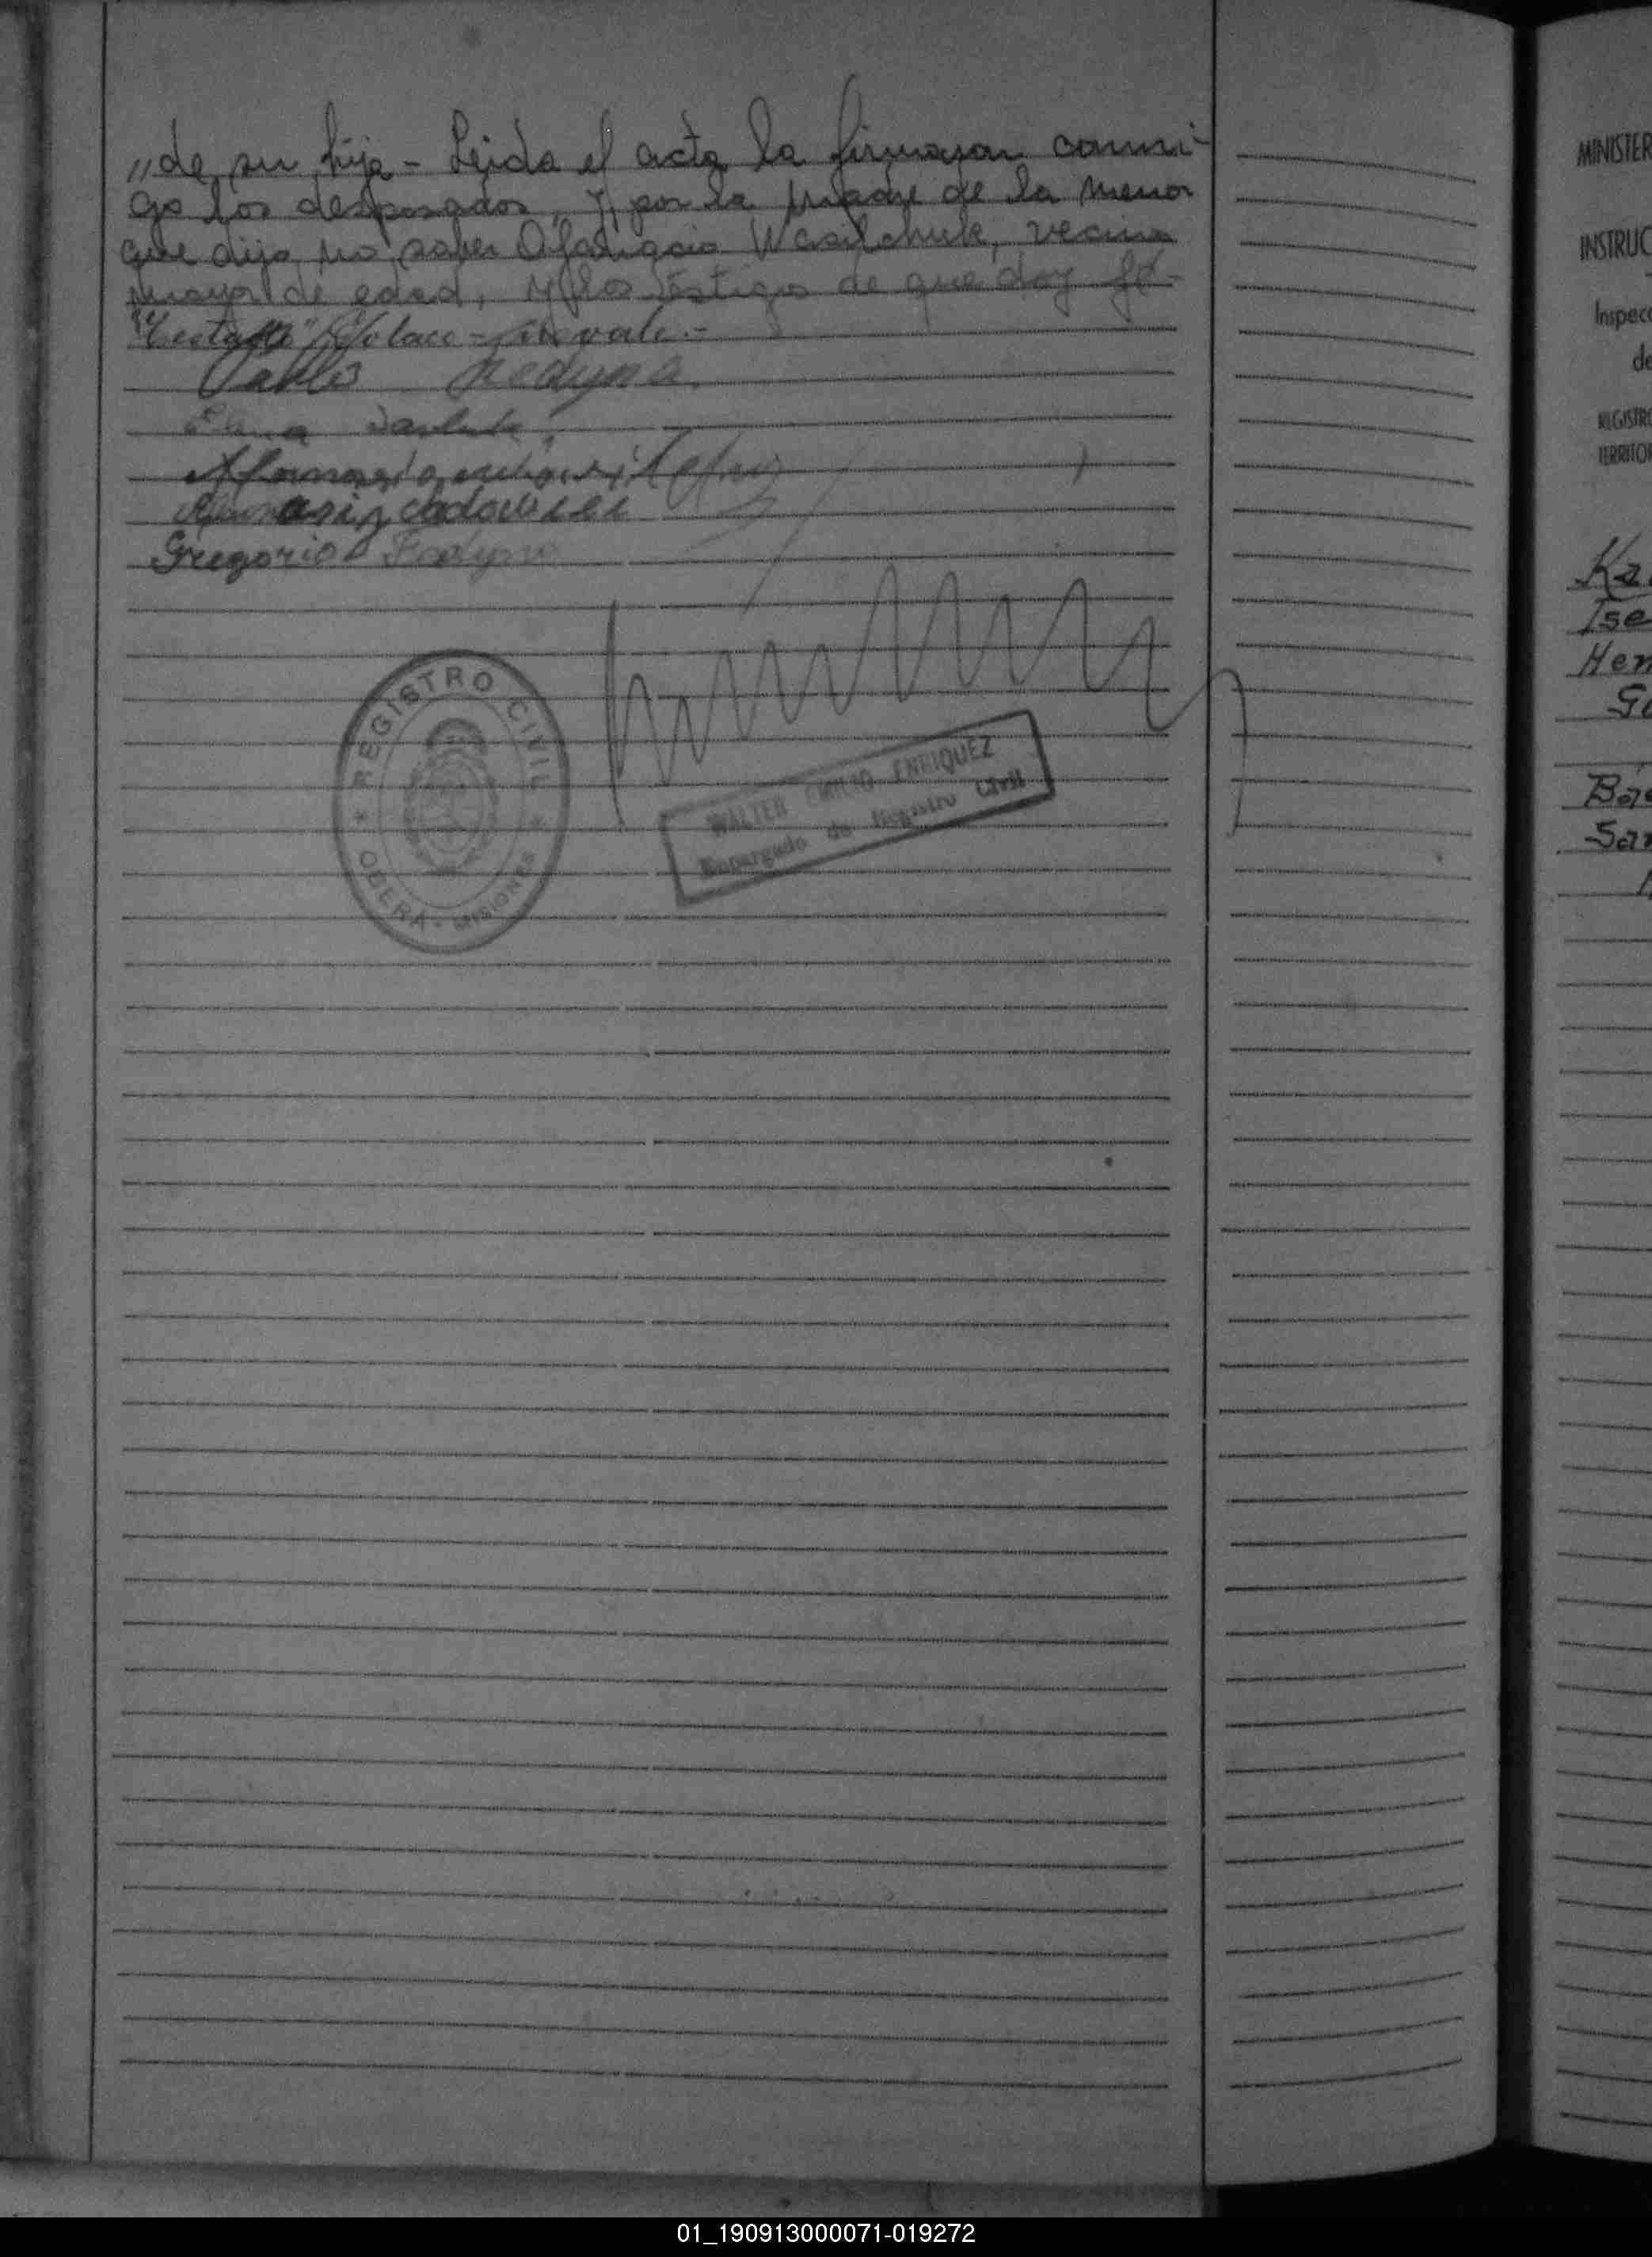 „de su hija - Leida el acta la firmaron conmi-
go los desposados, y por la madre de la menor
que dijo no saber Afanacio Wasilchuk, vecino
mayor de edad, y los testigos de que doy fé-
"Testado" no vale.-
Pablo Fedyna
Gregorio Fedyna
REGISTRO CIVIL
OBERÁ - MISIONES
WALTER EMILIO ENRIQUEZ
Encargado de Registro Civil
MINISTER
INSTRUC
Inspecc
de
REGISTRO
TERRITOR
Ka
Ise
Her
01_190913000071-019272